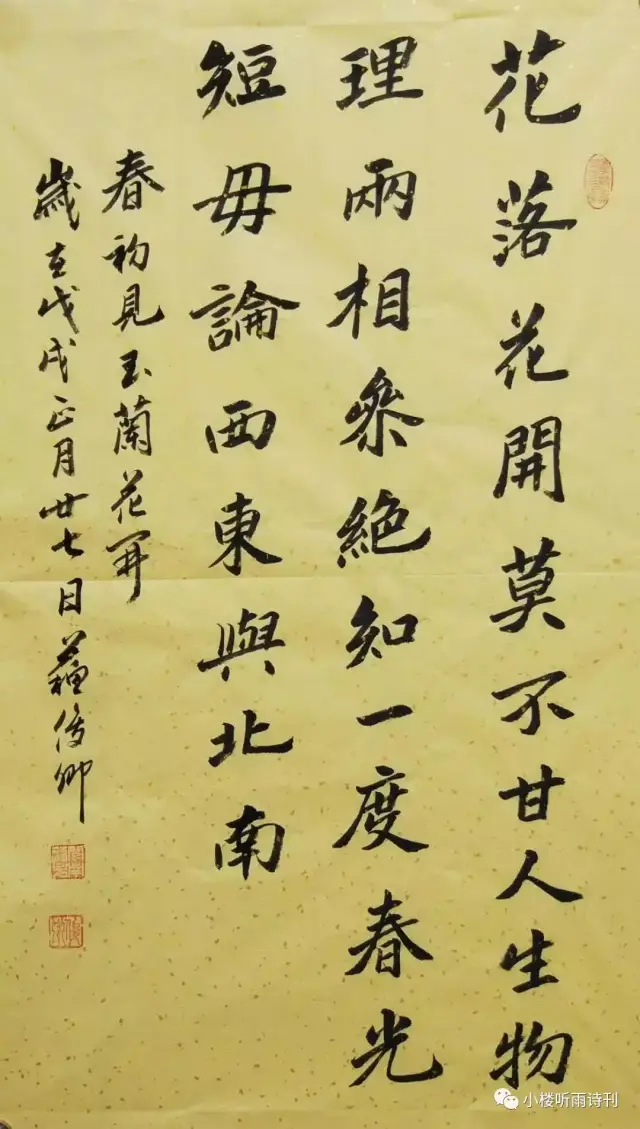 花落花開莫不甘人生物
理兩相參絶知一度春光
短毋論西東與北南
春初見玉蘭花開
歲在戊戌正月廿七日蘇俊卿
小楼听雨诗刊